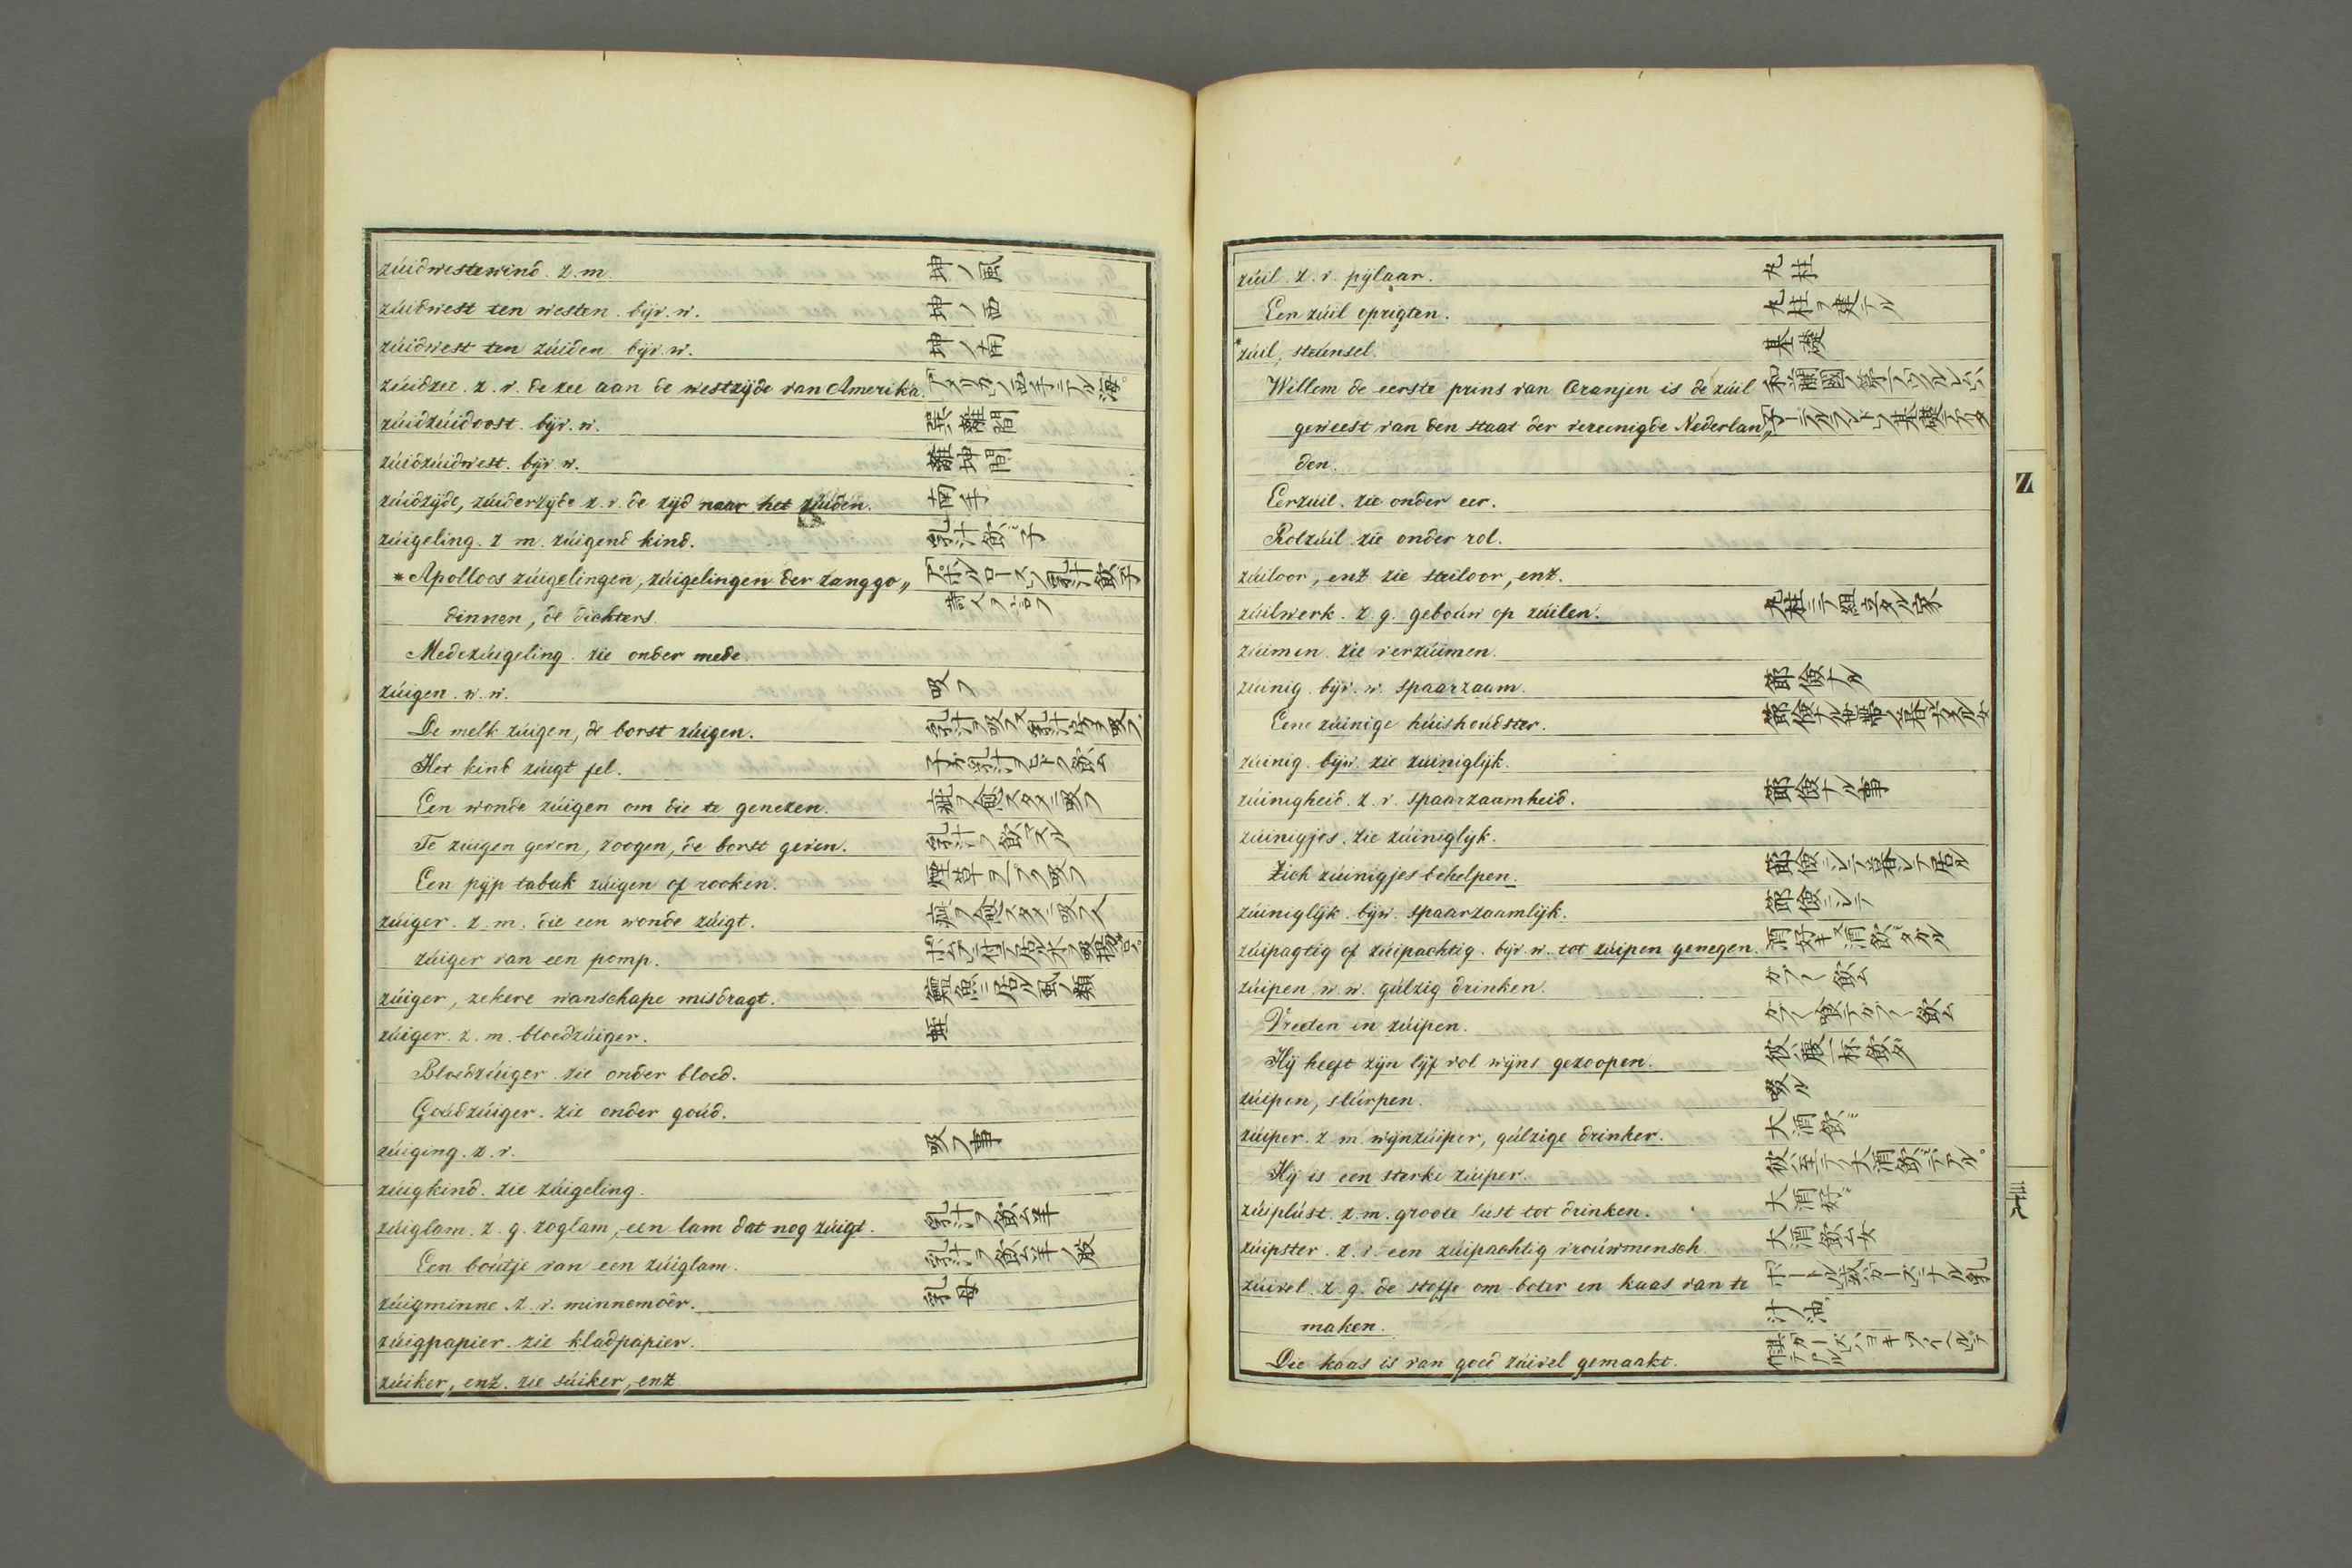 zúidwestewind. z. m. 坤ノ風
zúidwest ten westen. bÿv. w. 坤ノ西
zúidwest ten zúiden bÿv. w. 坤ノ南
zúidzee. z. v. de zee aan de westzÿde van Amerika.
zúidzúidoost. bÿv. w. 巽離間
zúidzúidwest. bÿv. w. 離坤間
zúidzÿde, zúiderzÿde z. v. de zÿd naar het zúiden. 南手
zúigeling. z m. zúigend kind. 乳汁飲ミ子
* Apolloos zúigelingen, zúigelingen der zanggo„
dinnen, de dichters.
Medezúigeling. zie onder mede.
zúigen. w. w. 吸フ
De melk zúigen, de borst zúigen.
Het kind zúigt fel.
Een wonde zúigen om die te genezen.
Te zúigen geven, zoogen, de borst geven. 乳汁ヲ飲マスル
Een pÿp tabak zúigen of rooken.
zúiger. z. m. die een wonde zúigt.
zúiger van een pomp.
zúiger, zekere wanschape misdragt.
zúiger. z. m. bloedzúiger. 蛭
Bloedzúiger. zie onder bloed.
Goúdzúiger. zie onder goúd.
zúiging. z. v. 吸フ事
zúigkind. zie zúigeling.
zúiglam. z. g. zoglam, een lam dat nog zúigt. 乳汁ヲ飲ム羊
Een boútje van een zúiglam. 乳汁ヲ飲ム羊ノ股
zúigminne. z. v. minnemoêr. 乳母
zúigpapier. zie kladpapier.
zúiker, enz. zie súiker, enz
zúil. z. v. pÿlaar. 丸柱
Een zúil oprigten. 丸柱ヲ建テル
* zúil, steúnsel. 基礎
Willem de eerste prins van Oranjen is de zúil
geweest van den staat der vereenigde Nederlan„
den.
Eerzuil. zie onder eer.
Rolzúil. zie onder rol.
zúiloor, enz zie stuiloor, enz.
zúilwerk. z. g. geboúw op zúilen. 丸柱ニテ組立タル家
zúimen. zie verzúimen.
zúinig. bÿv. w. spaarzaam. 節儉ナル
Eene zúinige húishoúdster.
zúinig. bÿw. zie zúiniglÿk.
zúinigheid. z. v. spaarzaamheid. 節儉ナル事
zúinigjes. zie zúiniglÿk.
Zich zúinigjes behelpen. 節儉ニシテ暮シテ居ル
zúiniglÿk. bÿw. spaarzaamlÿk. 節儉ニシテ
zúipagtig of zúipachtig. bÿv. w. tot zúipen genegen.
zúipen. w. w. gúlzig drinken.
Vreeten en zúipen.
Hÿ heeft zÿn lÿf vol wÿns gezoopen.
zúipen, slúrpen. 啜ル
zúiper. z. m. wÿnzúiper, gúlzige drinker. 大酒飲ミ
Hÿ is een sterke zúiper.
zúiplúst. z. m. groote lust tot drinken. 大酒好ミ
zúipster. z. v. een zúipachtig vroúwmensch. 大酒飲ム女
zúivel. z. g. de stoffe om boter en kaas van te
maken.
Die kaas is van goed zúivel gemaakt.
Z